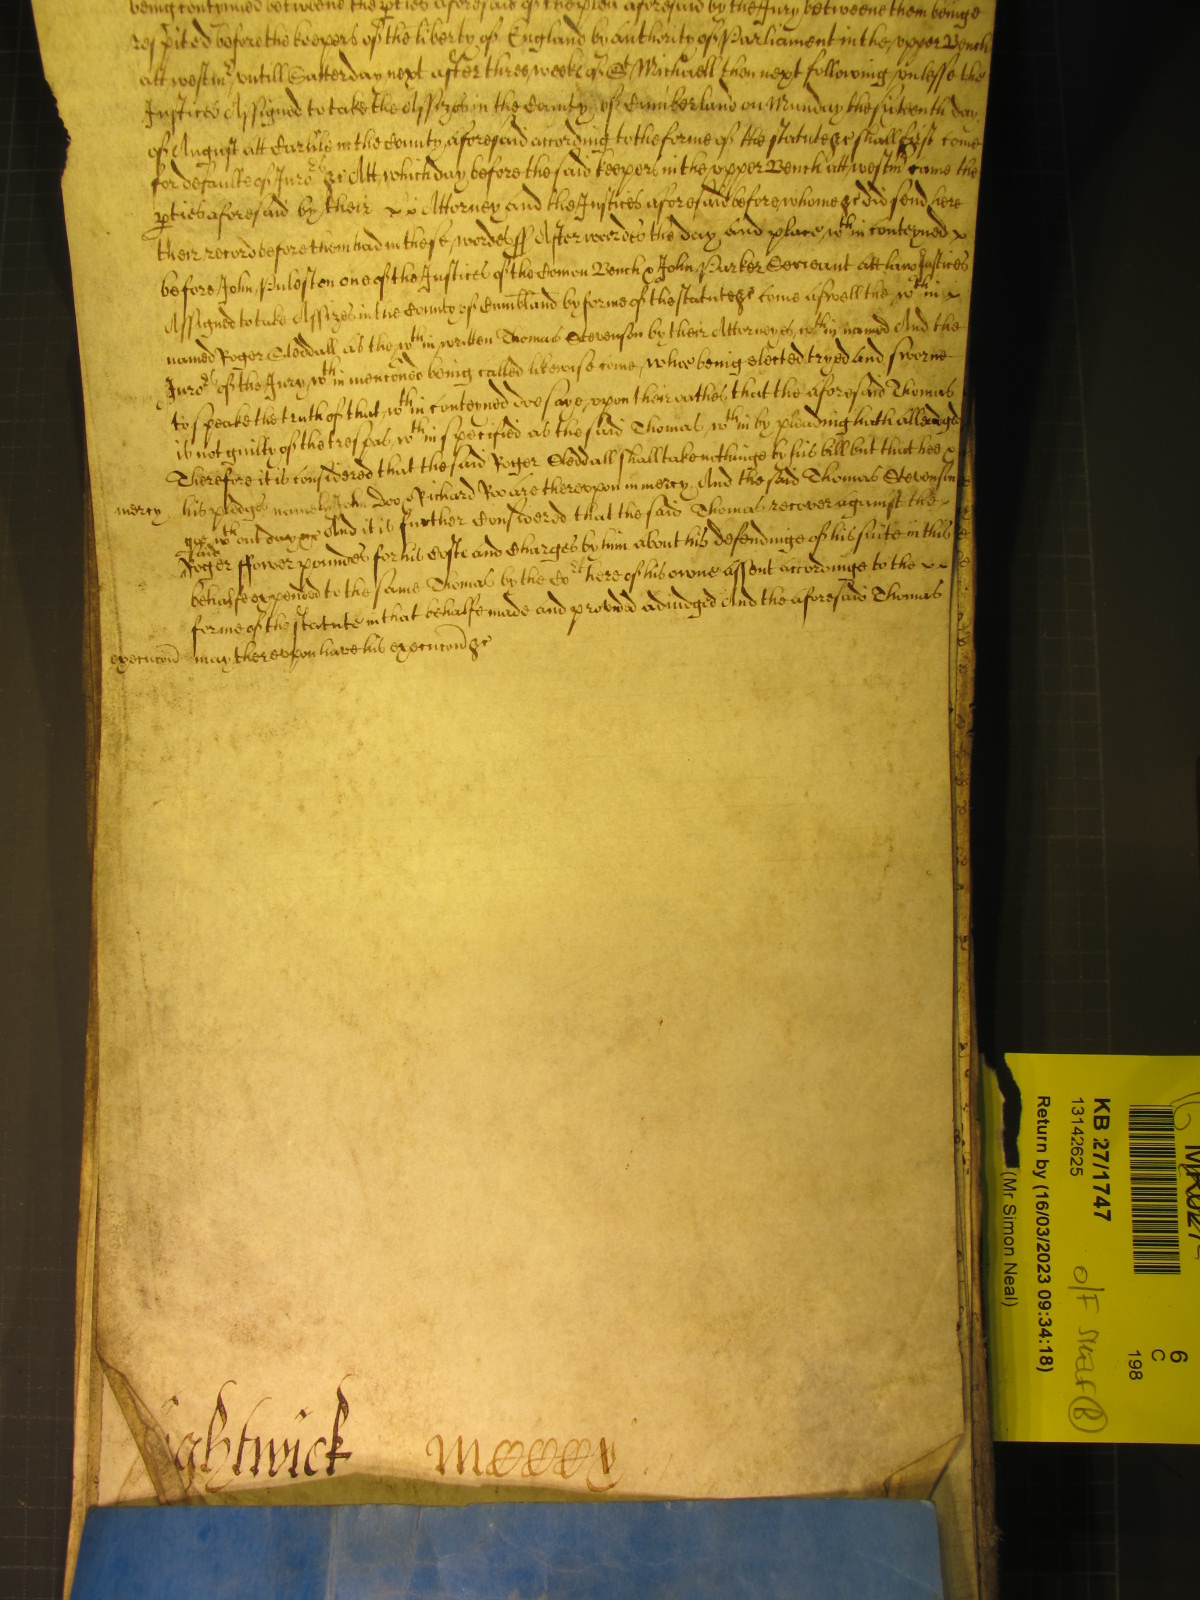 being continued betweene the pties aforesaid of the plea aforesaid by the Jury betweene them beinge
respited before the keepers of the liberty of England by authority of Parliament in the upper Bench
att westmr untill Satterday next after three weeks of St Michaell then next following unlesse the
Justices Assigned to take the Assizes in the County of Cumberland on Munday the sixteenth day
of August att Carlile in the County aforesaid according to the forme of the statute &c shall first come
for default of Juro's &c Att which day before the said keepers in the upper Bench att westmr came the
pties aforesaid by their x x Attorney and the Justices aforesaid before whome &c did send here
their record before them had in these wordes ff Afterwordes the day and place wth in conteyned x
before John Pulesten one of the Justices of the Comon Bench x John Parker Serieant att law Justices
Assigned to take Assizes in the County of Cumbland by forme of the statute &c come aswell the wth in x
named Roger Sleddall as the wth in written Thomas Stevenson by their Attorneyes wth in named And the
Juro's of the Jury wth in menconed being called likewise come, who being elected tryed and sworne
to speake the truth of that wth in conteyned doe saye upon their oathes that the aforesaid Thomas
is not guilty of the trespas wth in specified as the said Thomas wth in by pleading hath alleadged
Therefore it is considered that the said Roger Sleddall shall take nothinge by his bill but that hee x
mercy his pledges namely John Doo & Richard Roo are thereupon in mercy And the said Thomas Stevenson
goe wth out day &c And it is further Considered that the said Thomas recover against the
said Roger ffower poundes for his Coste and Charges by him about his defendinge of his suite in this
behalfe expended to the same Thomas by the Cort here of his owne assent accordinge to the x x
forme of the statute in that behalfe made and provided adiudged And the aforesaid Thomas
execucon may thereupon have his execucon &c
ightwick moooy
KB 27/1747
13142625
Return by (16/03/2023 09:34:18)
(Mr Simon Neal)
6
C
198